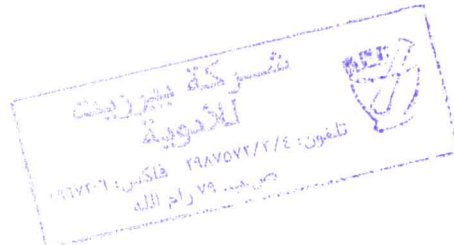 شركة بيرزيت
للأدوية
تلفون: ٢٩٨٧٥٧٢/٣/٤ فاكس:
ص.ب. ٧٩ رام الله